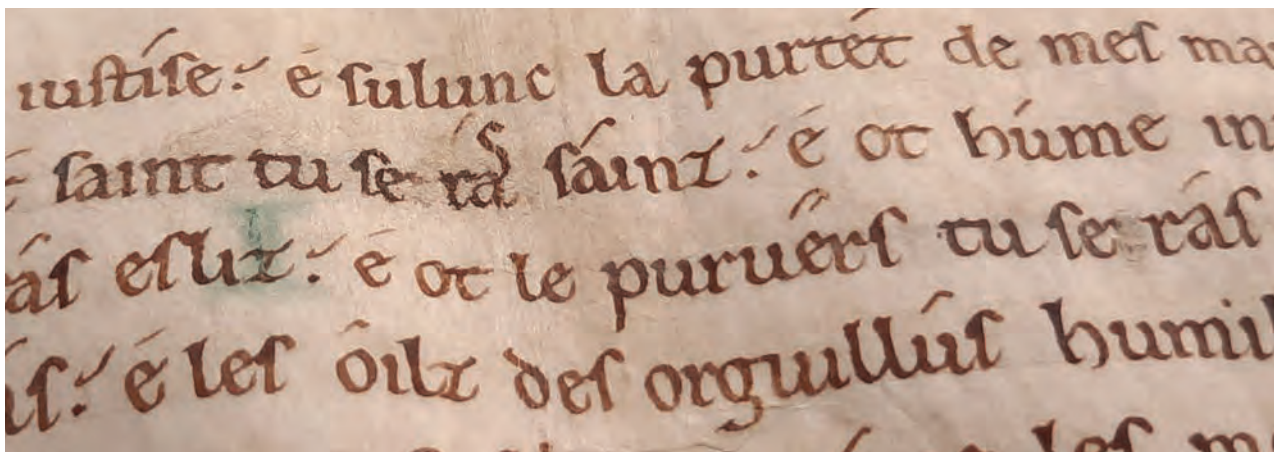 iuſtiſe. é ſulunc la purtét de meſ ma
ſaint tu ſe ráſ ſáinz. é ot húme in
áſ eſliz. é ot le puruérſ tu ſe ráſ
iſ. é leſ óilz deſ orguilluſ humil
leſ m